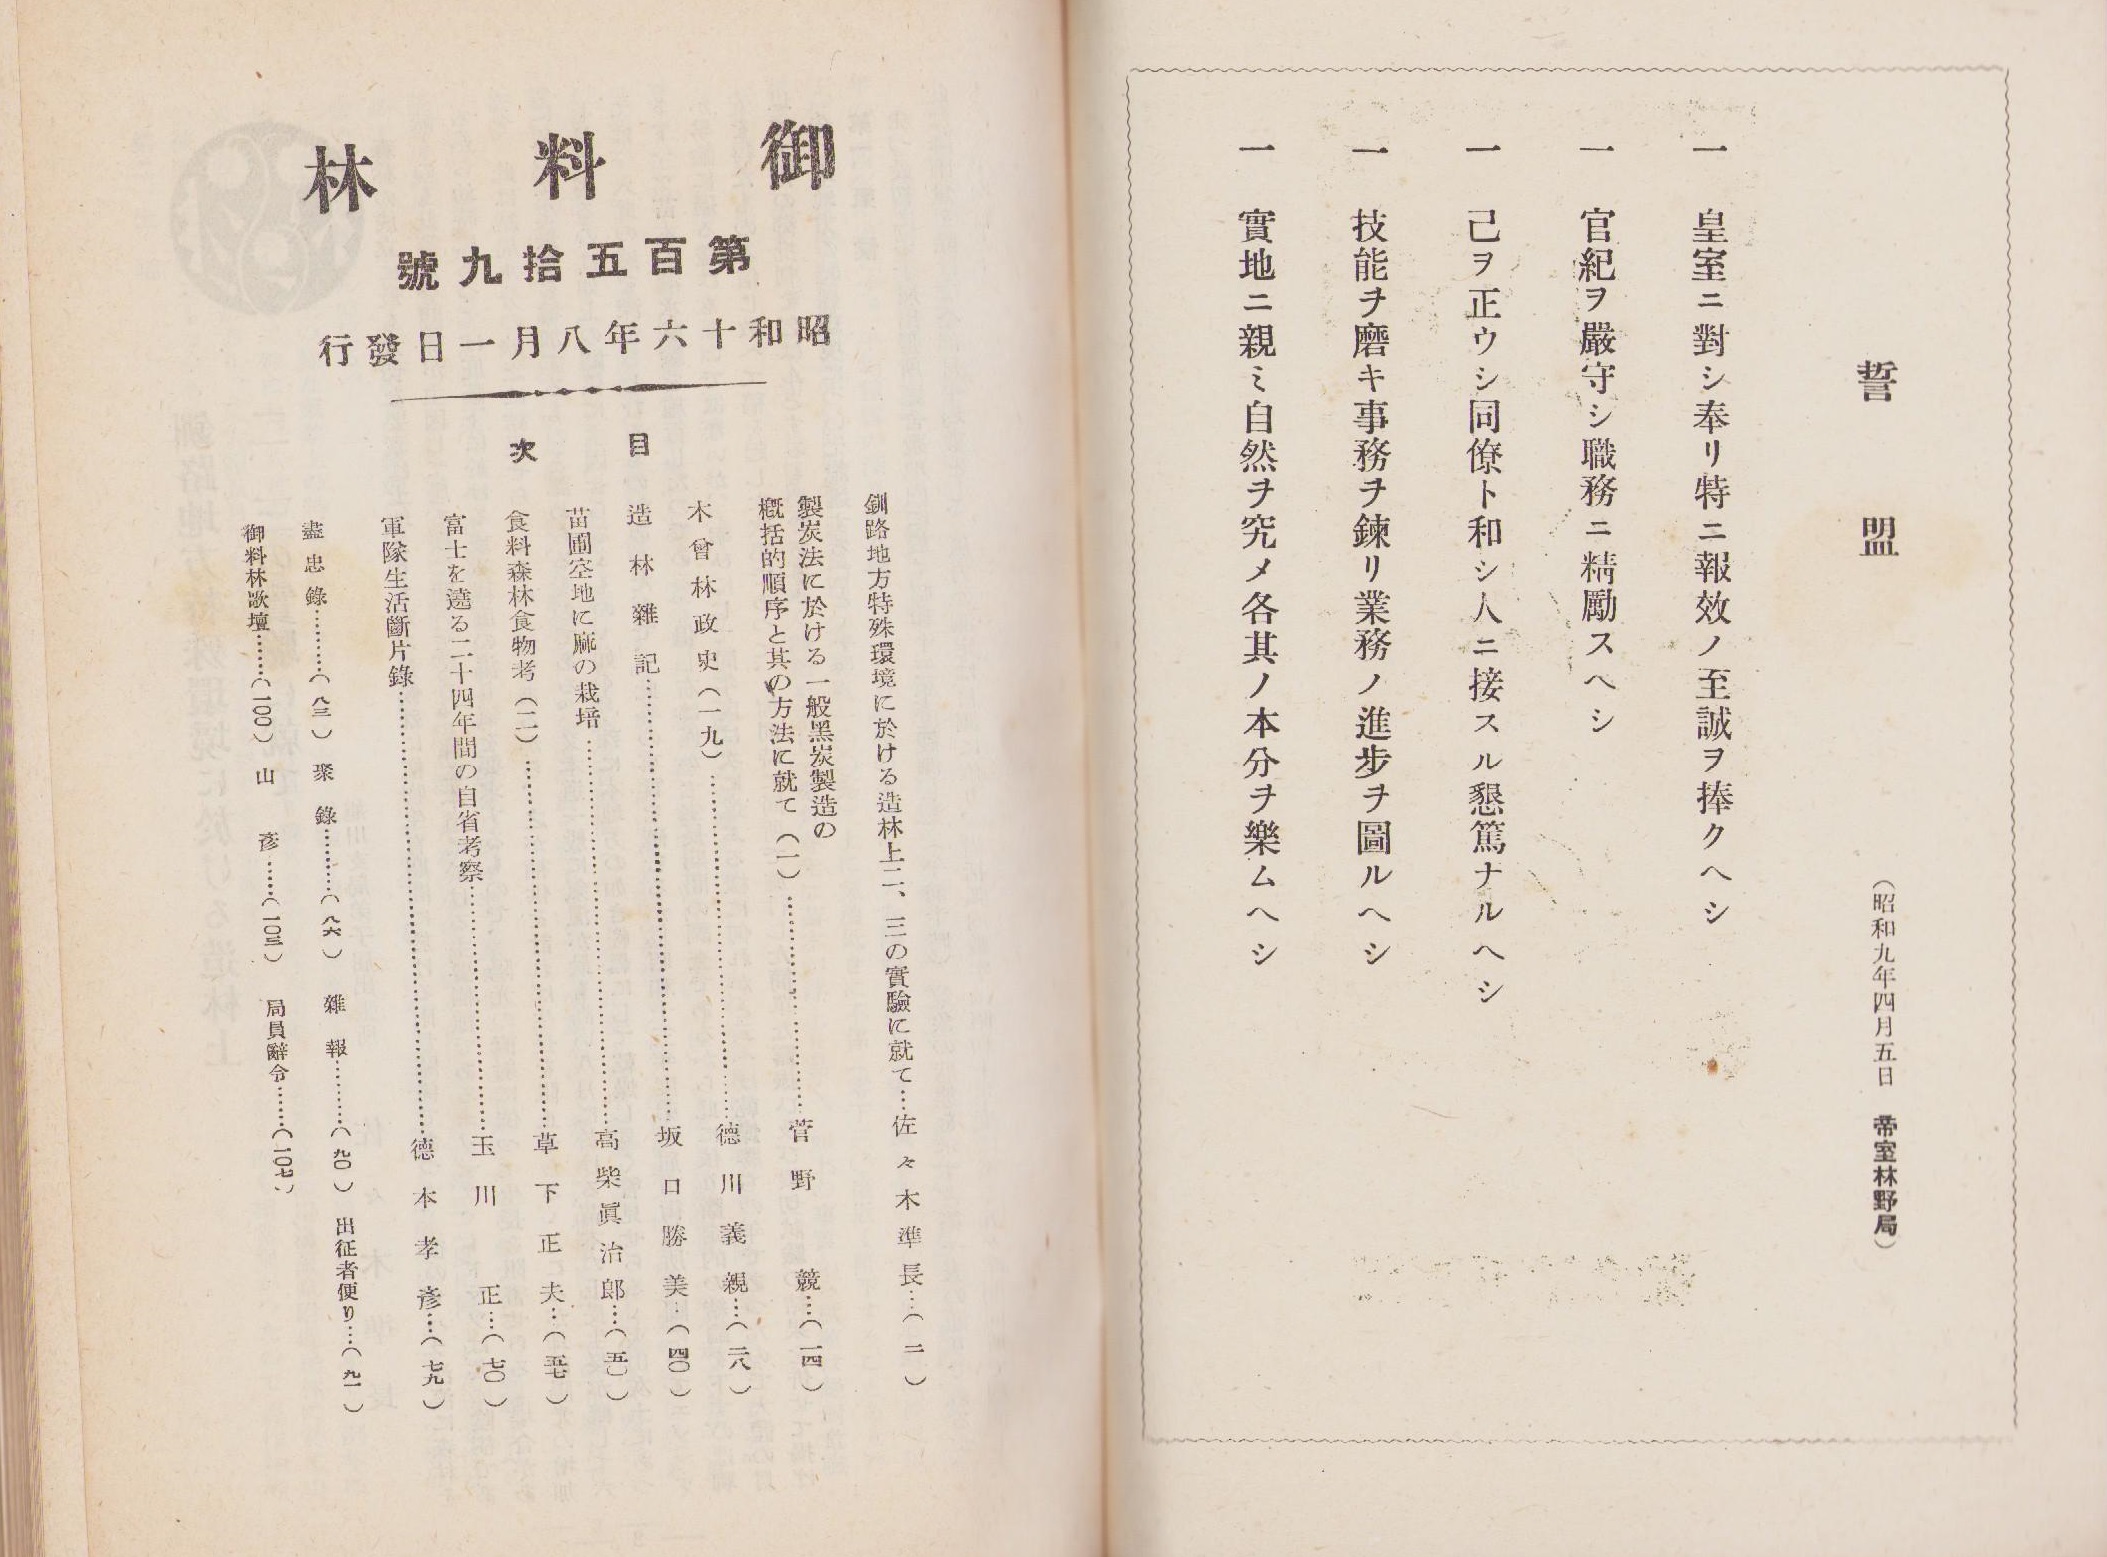 誓盟
（昭和九年四月五日　帝室林野局）
一　皇室ニ對シ奉リ特ニ報效ノ至誠ヲ捧クヘシ
一　官紀ヲ嚴守シ職務ニ精勵スヘシ
一　己ヲ正ウシ同僚ト和シ人ニ接スル懇篤ナルヘシ
一　技能ヲ磨キ事務ヲ鍊リ業務ノ進步ヲ圖ルヘシ
一　實地ニ親ミ自然ヲ究メ各其ノ本分ヲ樂ムヘシ
御料林
第百五拾九號
昭和十六年八月一日發行
目次
釧路地方特殊環境に於ける造林上二、三の實驗に就て…佐々木準長…（二）
製炭法に於ける一般黑炭製造の
概括的順序と其の方法に就て（一）…………菅野競…（一四）
木曾林政史（一九）…………德川義親…（二八）
造林雜記…………坂口勝美…（四〇）
苗圃空地に蔴の栽培…………高柴眞治郎…（五〇）
食料森林食物考（二）…………草下正夫…（五七）
富士を遶る二十四年間の自省考察…………玉川正…（七〇）
軍隊生活斷片錄…………德本孝彥…（七九）
盡忠錄………（八三）　聚錄………（八六）　雜報………（九〇）　出征者便り…（九一）
御料林歌壇……（一〇〇）　山彥……（一〇三）　局員辭令……（一〇七）